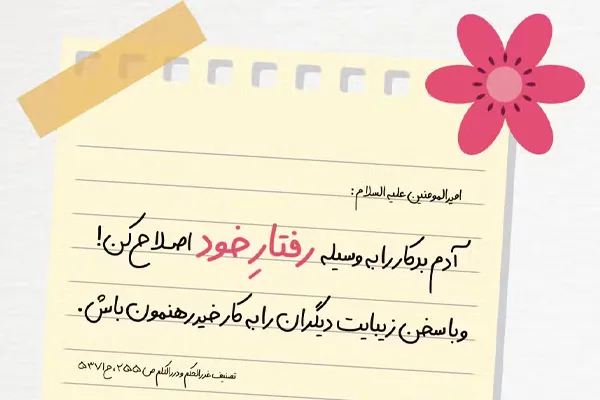 امیرالمومنین علیه السلام:
آدم بدکار را به وسیله رفتارِ خود اصلاح کن!
و با سخن زیبایت دیگران را به کار خیر رهنمون باش.
تصنیف غررالحکم و دررالکلم ص ۲۵۵، ح ۵۳۷۱